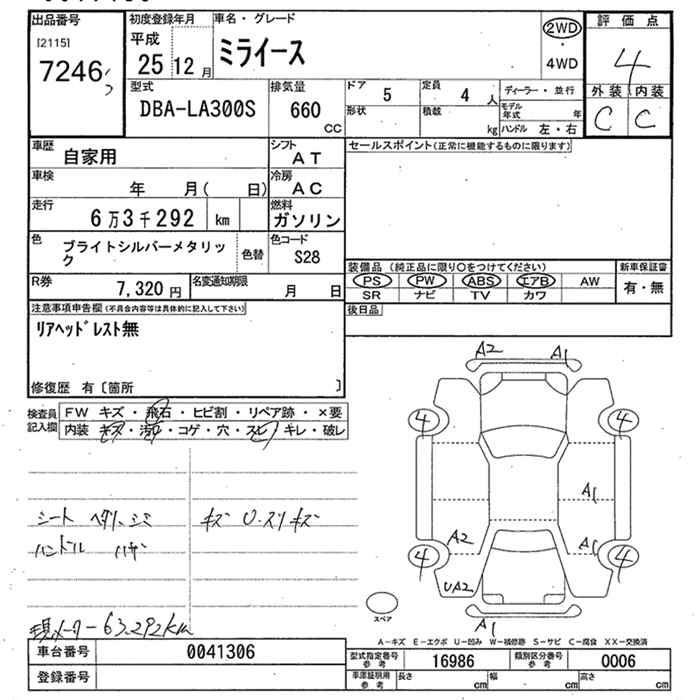 出品番号
[2115]
7246
初度登録年月
平成
25 12 月
車名・グレード
ミライース
2WD
・
4WD
評価点
4
外装 内装
C C
型式
DBA-LA300S
排気量
660
CC
ドア 5
定員 4 人
形状
積載 kg
ディーラー・並行
モデル年式 年
ハンドル 左・右
車歴 自家用
シフト AT
セールスポイント(正常に機能するものに限ります)
車検 年 月( 日)
冷房 AC
走行 6万3千292 km
燃料 ガソリン
色 ブライトシルバーメタリック
色替
色コード S28
装備品 (純正品に限り○をつけてください)
新車保証書
PS PW ABS エアB AW
有・無
SR ナビ TV カワ
R券 7,320 円
名変通知期限 月 日
後日品
注意事項申告欄(不具合内容等は具体的に記入して下さい)
リアヘッドレスト無
修復歴 有〔箇所 〕
検査員記入欄
FW キズ・飛石・ヒビ割・リペア跡・×要
内装 キズ・汚れ・コゲ・穴・スレ・キレ・破レ
シート ヘタリ、シミ
キズ U.スリキズ
ハンドル ハゲ
現メーター63,292km
A2 A1
4 4
A1
A2 A1
4 4
UA2
A1
スペア
A-キズ E-エクボ U-凹み W-補修跡 S-サビ C-腐食 XX-交換済
車台番号 0041306
型式指定番号 参考 16986
類別区分番号 参考 0006
登録番号
車庫証明用 参考
長さ cm
幅 cm
高さ cm